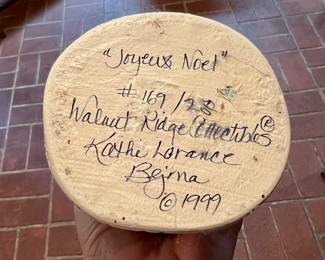 "Joyeux Noel"
# 169/
Walnut Ridge Collectibles ©
Kathi Lorance
Bejma
© 1999